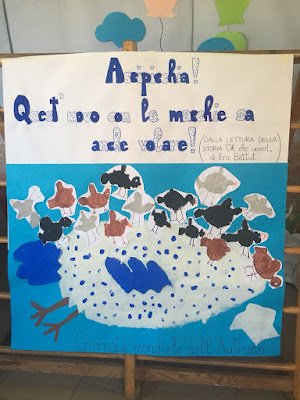 Accipicchia!
Quest' uovo con le macchie sa
anche volare!
(DALLA LETTURA DELLA
STORIA "Oh che uovo!",
di Eric Battut)
Giornata mondiale dell'Autismo